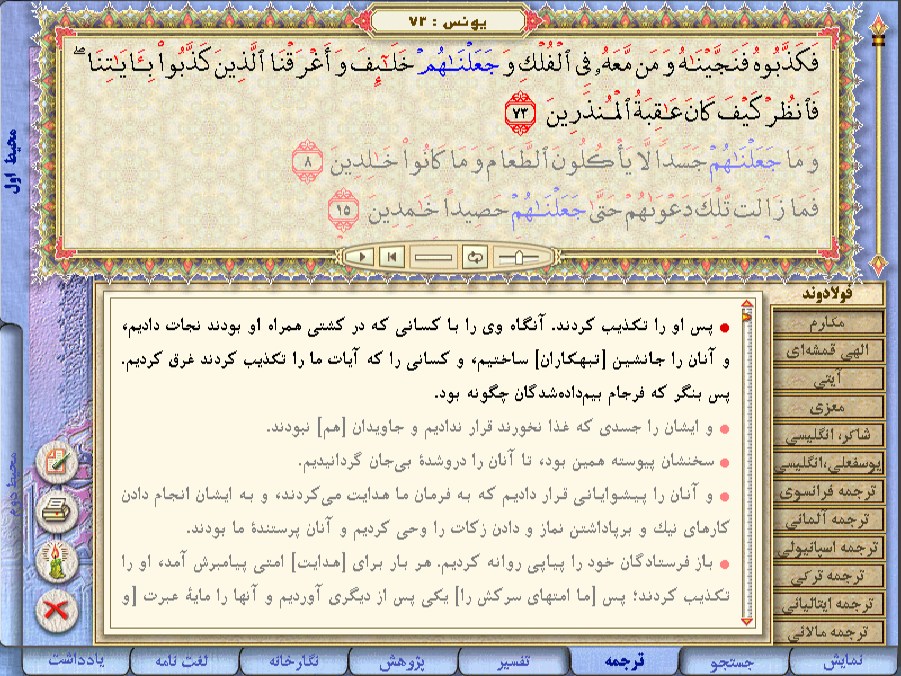 یونس : ۷۳
فَكَذَّبُوهُ فَنَجَّيْنَـٰهُ وَ مَن مَّعَهُۥ فِى ٱلْفُلْكِ وَ جَعَلْنَـٰهُمْ خَلَـٰٓئِفَ وَ أَغْرَقْنَا ٱلَّذِينَ كَذَّبُوا۟ بِـَٔايَـٰتِنَا ۖ
فَٱنظُرْ كَيْفَ كَانَ عَـٰقِبَةُ ٱلْمُنذَرِينَ ۷۳
وَ مَا جَعَلْنَـٰهُمْ جَسَدًا لَّا يَأْكُلُونَ ٱلطَّعَامَ وَ مَا كَانُوا۟ خَـٰلِدِينَ ۸
فَمَا زَالَت تِّلْكَ دَعْوَىٰهُمْ حَتَّىٰ جَعَلْنَـٰهُمْ حَصِيدًا خَـٰمِدِينَ ۱۵
محیط اول
محیط دوم
پس او را تکذیب کردند. آنگاه وی را با کسانی که در کشتی همراه او بودند نجات دادیم،
و آنان را جانشین [تبهکاران] ساختیم، و کسانی را که آیات ما را تکذیب کردند غرق کردیم.
پس بنگر که فرجام بیم‌داده‌شدگان چگونه بود.
و ایشان را جسدی که غذا نخورند قرار ندادیم و جاویدان [هم] نبودند.
سخنشان پیوسته همین بود، تا آنان را دروشدهٔ بی‌جان گردانیدیم.
و آنان را پیشوایانی قرار دادیم که به فرمان ما هدایت می‌کردند، و به ایشان انجام دادن
کارهای نیک و برپاداشتن نماز و دادن زکات را وحی کردیم و آنان پرستندهٔ ما بودند.
باز فرستادگان خود را پیاپی روانه کردیم. هر بار برای [هدایت] امتی پیامبرش آمد، او را
تکذیب کردند؛ پس [ما امتهای سرکش را] یکی پس از دیگری آوردیم و آنها را مایهٔ عبرت [و
فولادوند
مکارم
الهی قمشه‌ای
آیتی
معزی
شاکر، انگلیسی
یوسفعلی،انگلیسی
ترجمه فرانسوی
ترجمه آلمانی
ترجمه اسپانیولی
ترجمه ترکی
ترجمه ایتالیائی
ترجمه مالائی
نمایش
جستجو
ترجمه
تفسیر
پژوهش
نگارخانه
لغت نامه
یادداشت